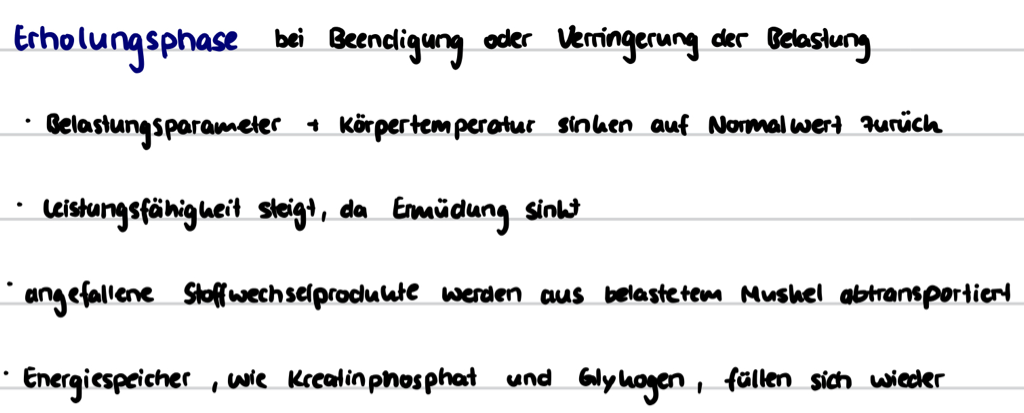 Erholungsphase bei Beendigung oder Verringerung der Belastung
· Belastungsparameter + Körpertemperatur sinken auf Normalwert zurück
· Leistungsfähigkeit steigt, da Ermüdung sinkt
· angefallene Stoffwechselprodukte werden aus belastetem Muskel abtransportiert
· Energiespeicher, wie Kreatinphosphat und Glykogen, füllen sich wieder